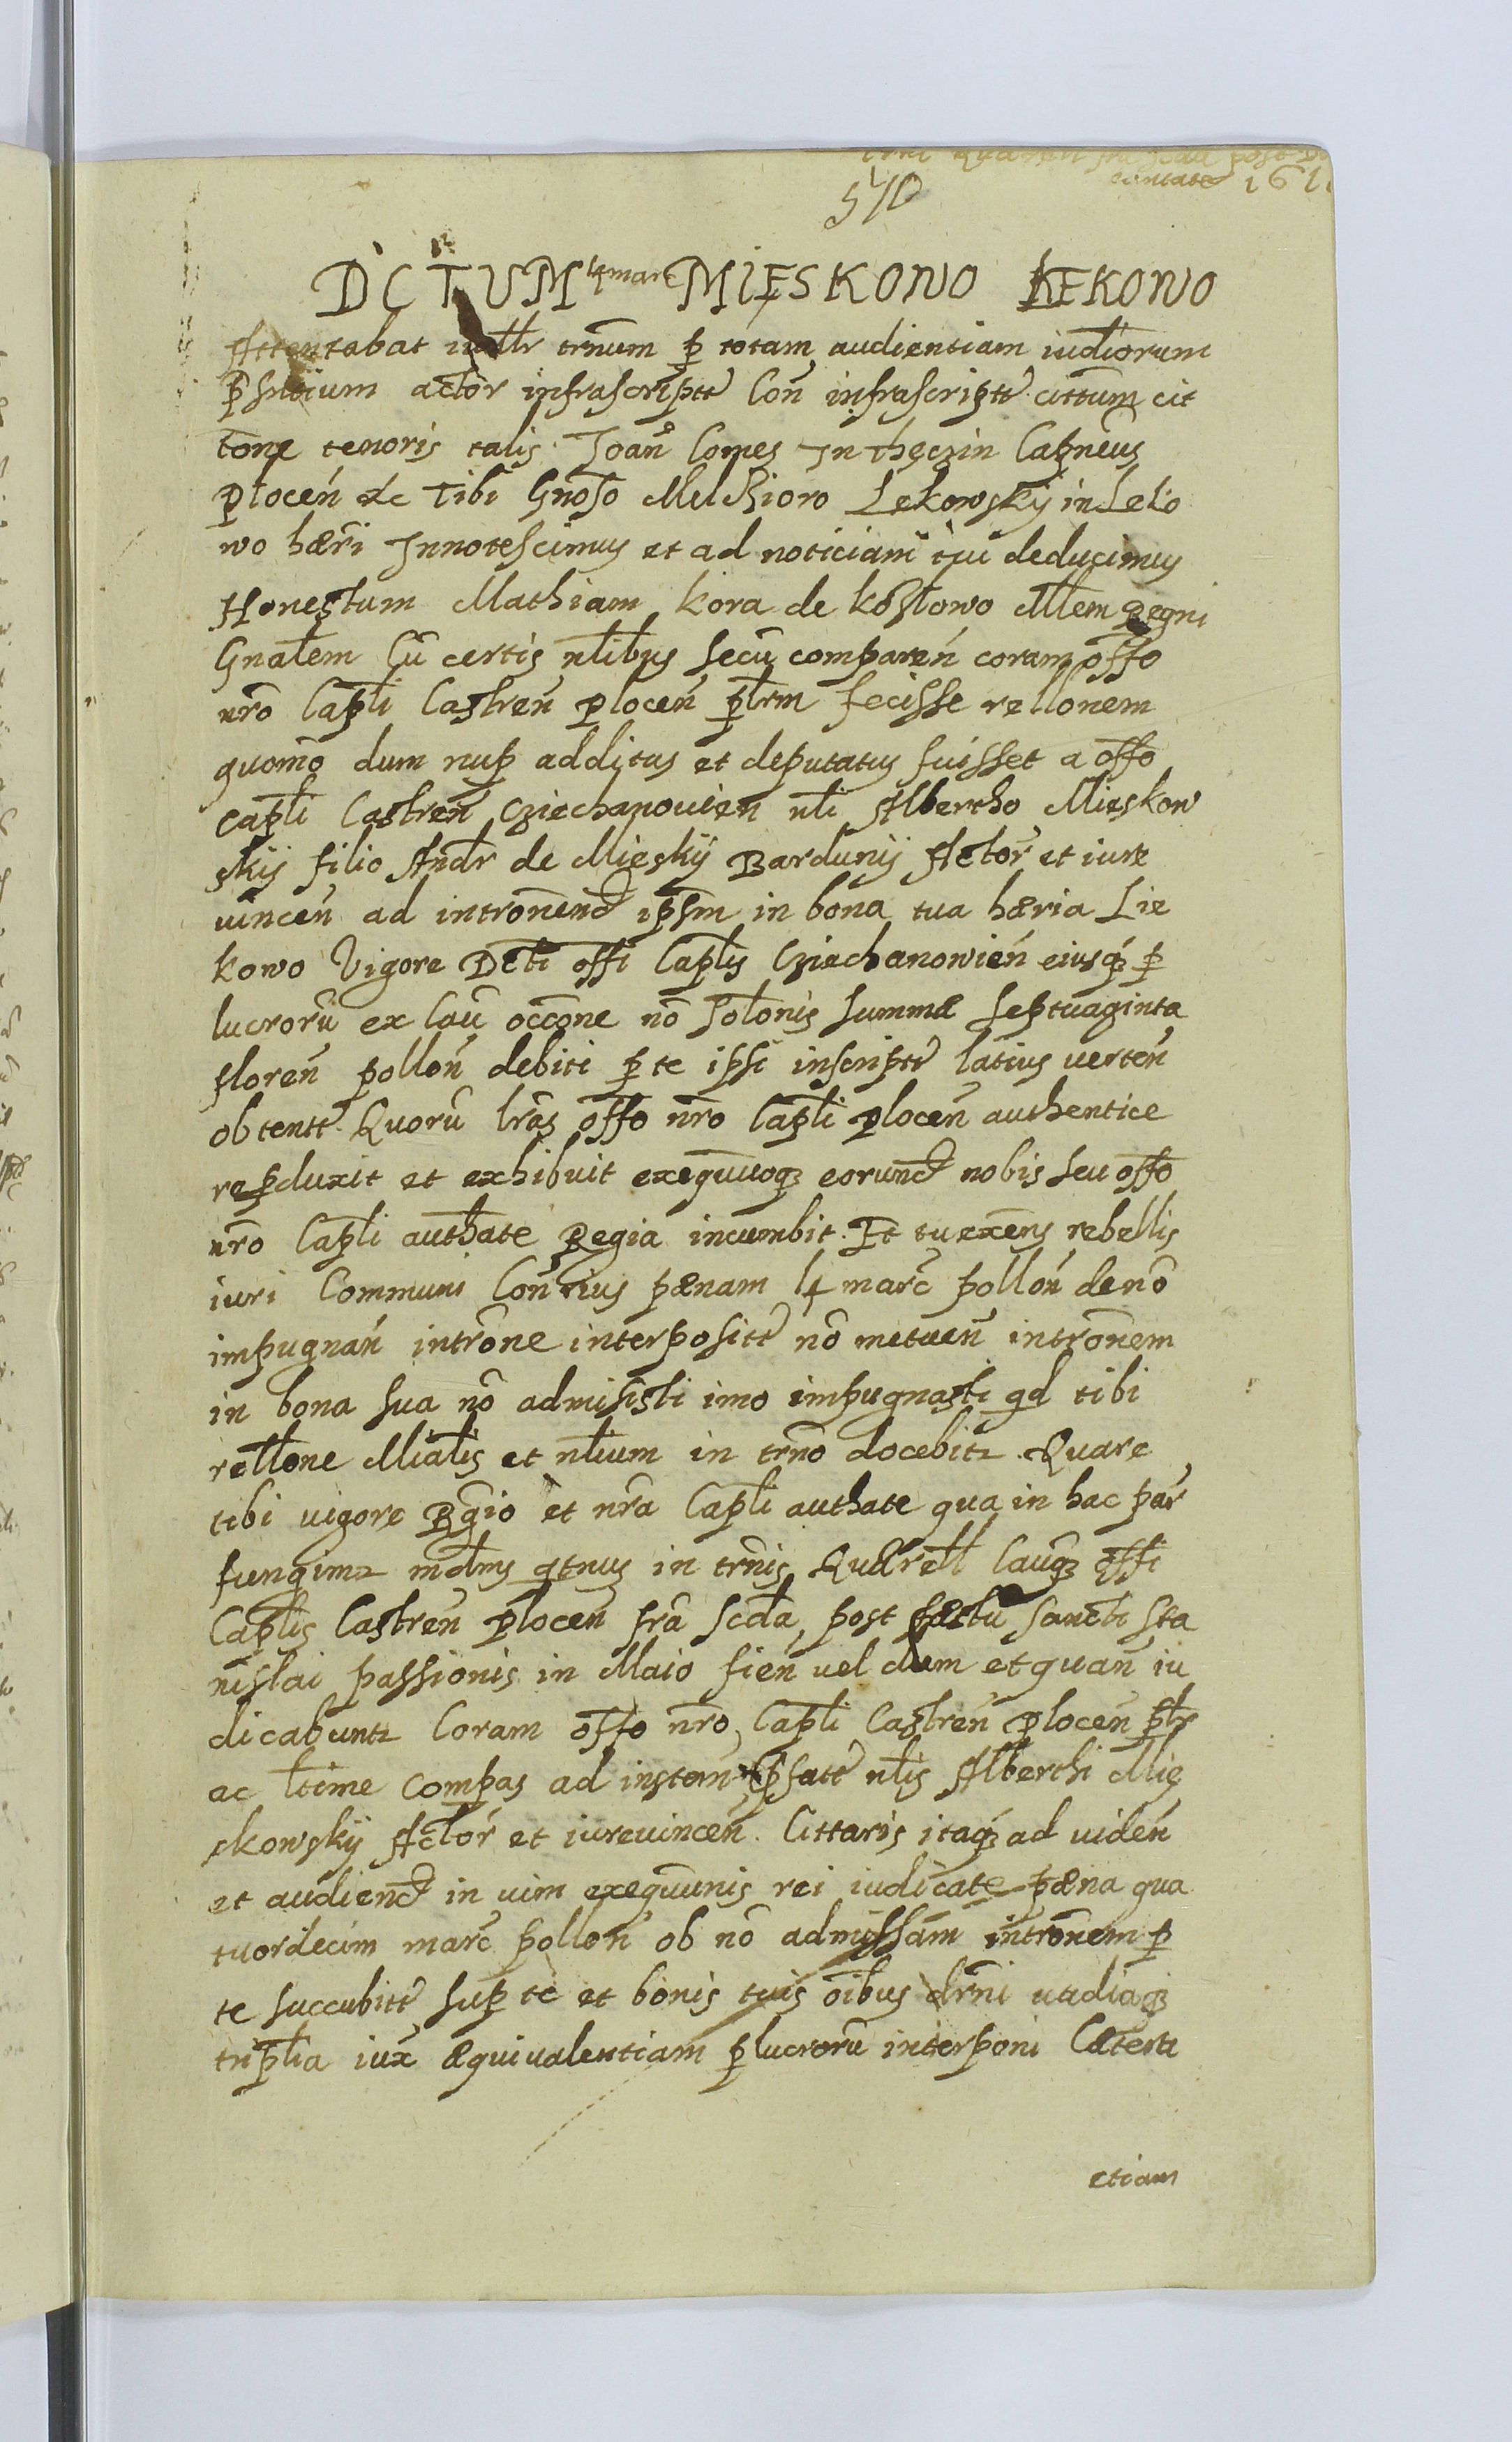 post
1611
570
DCTUM 14 marc MIESKOWO LEKOWO
Attentabat iudltr trnum p totam audientiam iudiorum
pñtium actor infrascriptt Con infrascriptt cittum cit
tone tenoris talis Joañ Comes In thęczin Capneus
plocen̄ &c Tibi Gnoso Melchioro Lekowskÿ in Leko
wo hæri Innotescimus et ad noticiam tui deducimus
Honestum Mathiam Kora de Kostowo Mlem Regni
Gnalem Cū certis nlibus secū comparen̄ coram offo
nr̄o Capli Castren̄ plocen̄ pltm fecisse rellonem
quomō dum nup additus et deputatus fuisset a offo
Capli Castren̄ Cziechanouien̄ nli Albertho Mieskow
skÿ filio Andr de Mieskÿ Bardunÿ Actor et iure
uincen̄ ad intronend ipsm in bona tua hæria Lie
kowo Vigore Dcti offi Caplis Cziechanowien̄ eiusq p
lucrorū ex Cau occone nō solonis summæ septuaginta
floren̄ pollon̄ debiti p te ipsi inscriptt latius verten̄
obtentt. Quorū lr̄as offo nr̄o Capli plocen̄ authentice
repduxit et exhibuit exequuoq eorund nobis seu offo
nr̄o Capli authate Regia incumbit. Et tu exens rebellis
iuri Communi Contrius pænam 14 marc pollon̄ de nō
impugnan̄ introne interpositt nō metuen̄ intronem
in bona sua nō admisisti imo impugnasti qd tibi
rellone Mialis et nlium in trnō docebitz. Quare
tibi uigore Rgio et nr̄a Capli authate qua in hac par
fungimz mdlms qtnus in trnis Quærell Cauq offi
Caplis Castren̄ plocen̄ fr̄a scda post fæstū sancti sta
nislai passionis in Maio fien̄ uel dum et quan̄ iu
dicabuntz Coram offo nr̄o Capli Castren̄ plocen̄ pltr
ac ltime compas ad instan pfatt nlis Alberthi Mie
skowskÿ Actor et iureuincen̄. Cittaris itaq ad uiden̄
et audiend in uim exequunis rei iudicate pæna qua
tuordecim marc pollon̄ ob nō admissam intronem p
te succubitt sup te et bonis tuis oibus drni uadiaq
triplia iux æquiualentiam plucrorū interponi Cætera
etiam